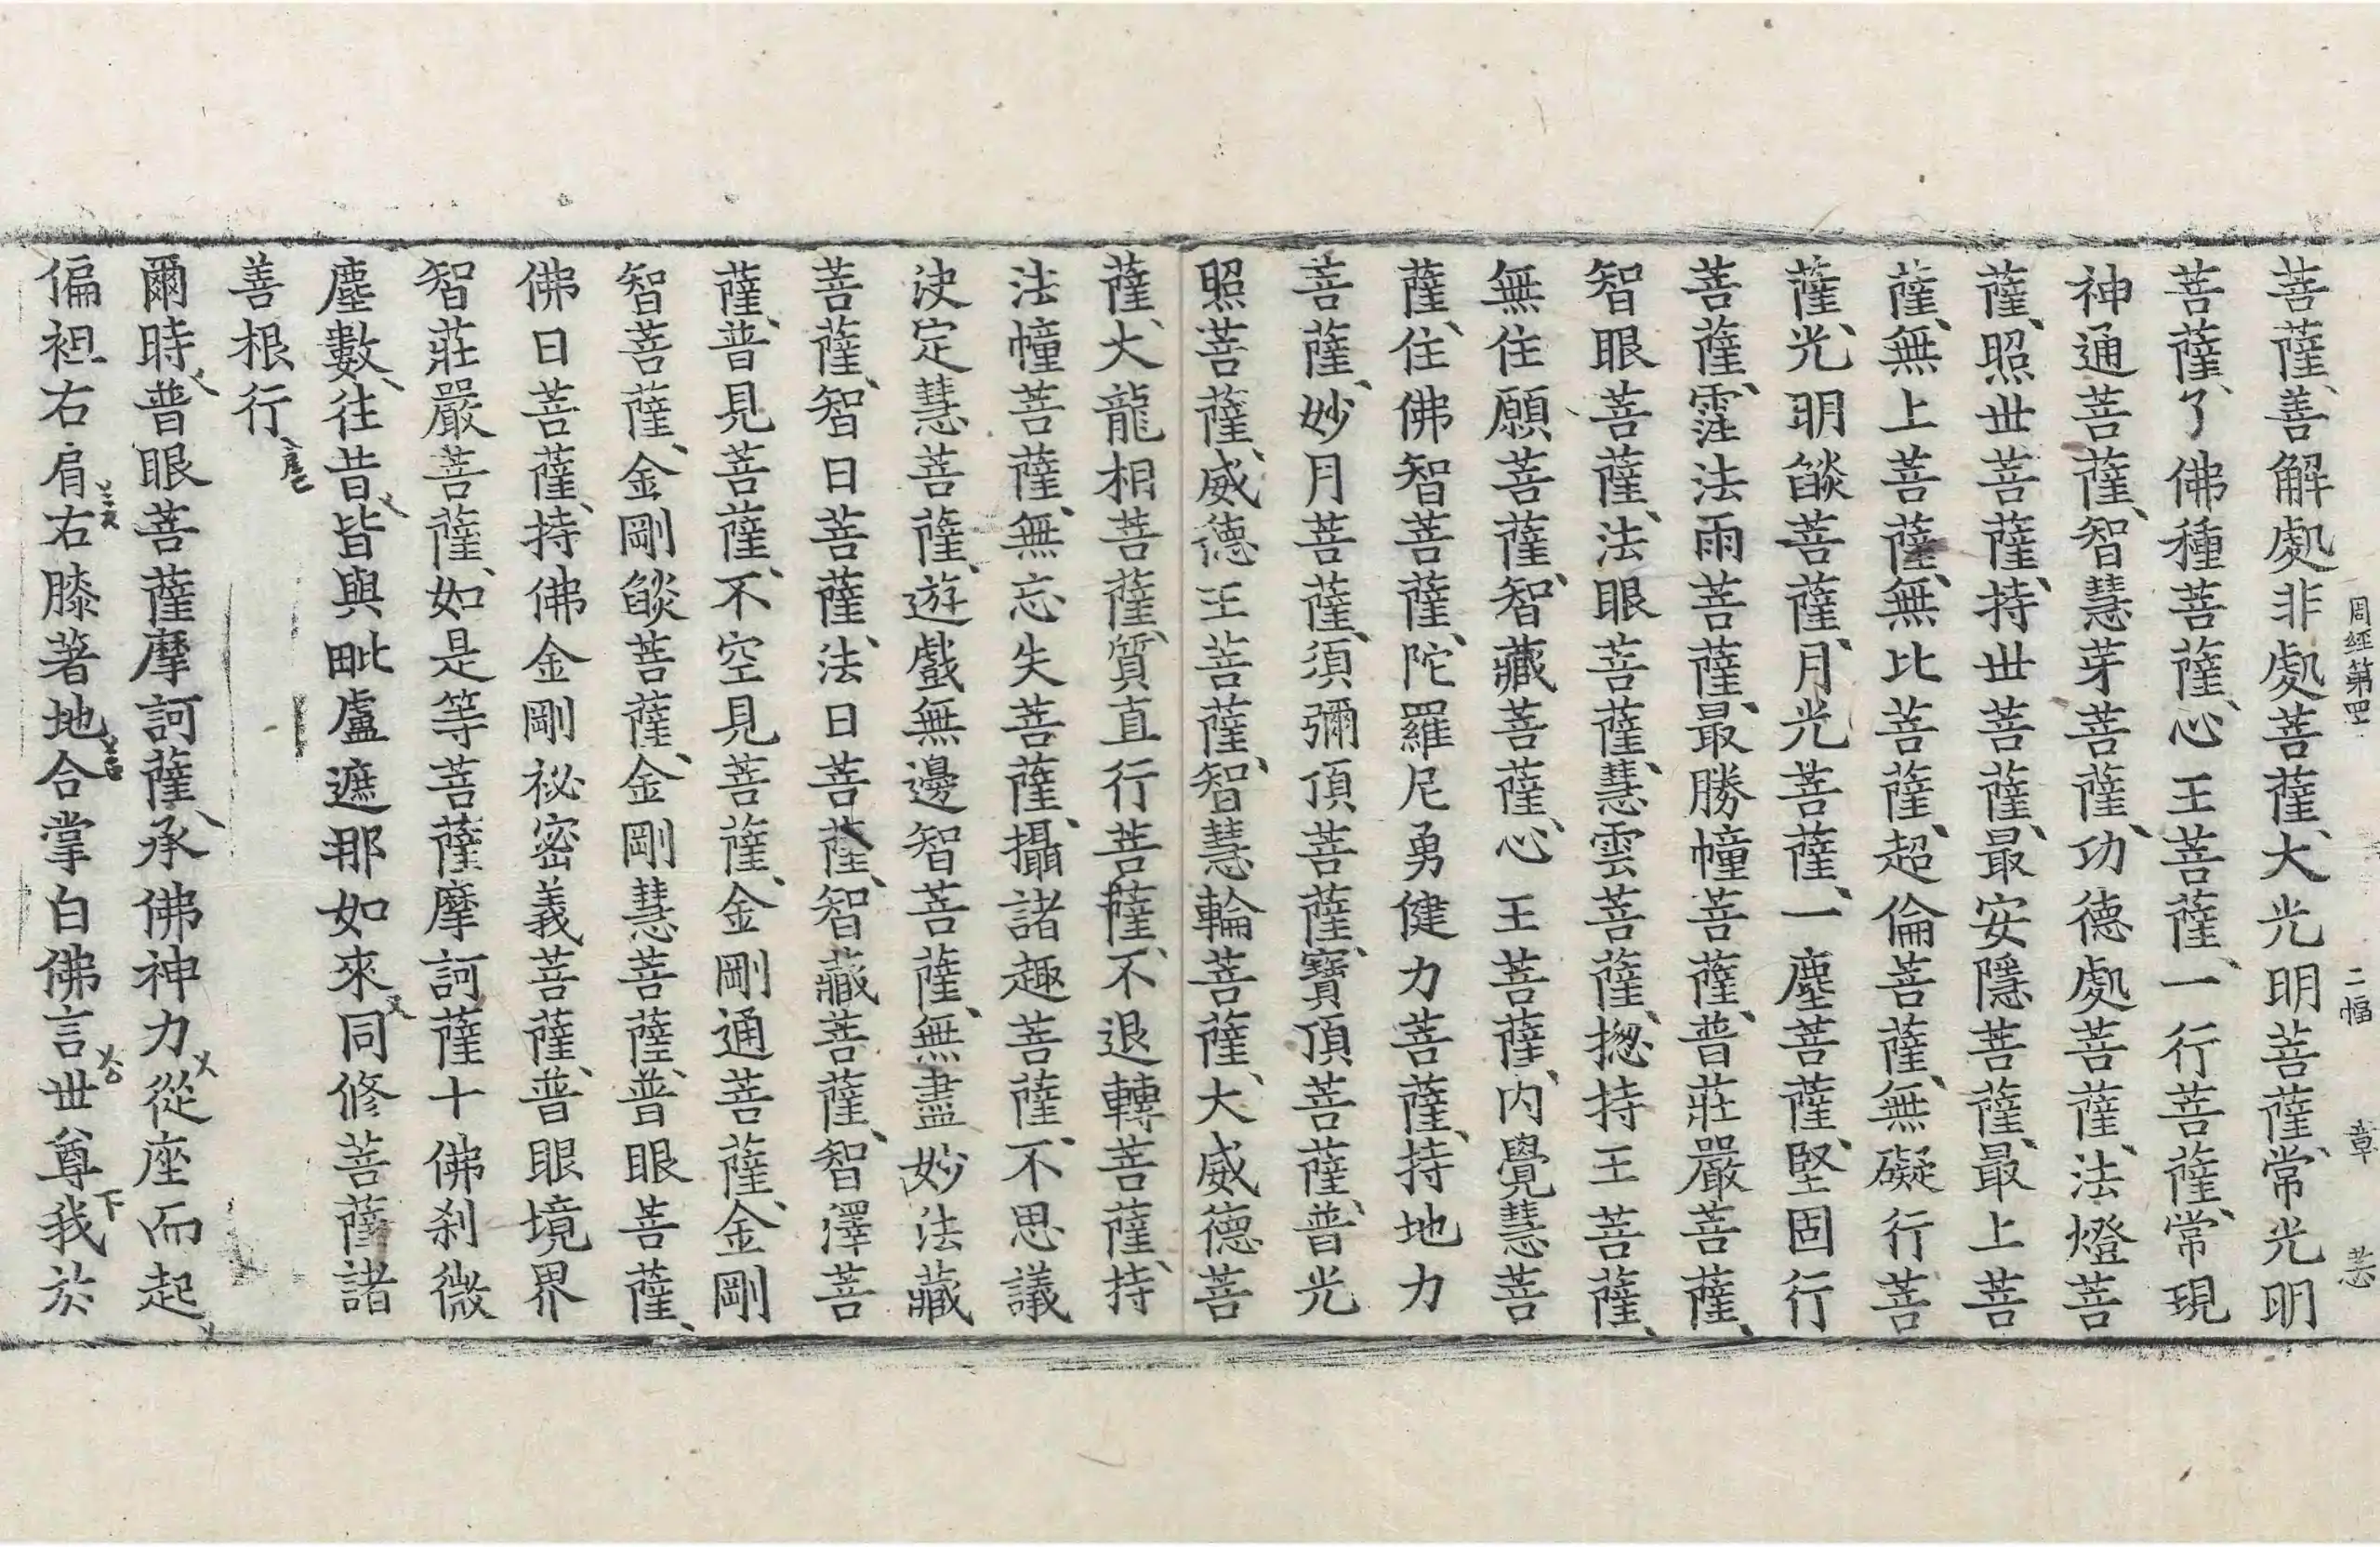 周經第四 二幅 章 恙
菩薩、善解處非處菩薩、大光明菩薩、常光明
菩薩、了佛種菩薩、心王菩薩、一行菩薩、常現
神通菩薩、智慧芽菩薩、功德處菩薩、法燈菩
薩、照世菩薩、持世菩薩、最安隱菩薩、最上菩
薩、無上菩薩、無比菩薩、超倫菩薩、無礙行菩
薩、光明燄菩薩、月光菩薩、一塵菩薩、堅固行
菩薩、霔法雨菩薩、最勝幢菩薩、普莊嚴菩薩、
智眼菩薩、法眼菩薩、慧雲菩薩、揔持王菩薩、
無住願菩薩、智藏菩薩、心王菩薩、内覺慧菩
薩、住佛智菩薩、陀羅尼勇健力菩薩、持地力
菩薩、妙月菩薩、須彌頂菩薩、寶頂菩薩、普光
照菩薩、威德王菩薩、智慧輪菩薩、大威德菩
薩、大龍相菩薩、質直行菩薩、不退轉菩薩、持
法幢菩薩、無忘失菩薩、攝諸趣菩薩、不思議
決定慧菩薩、遊戲無邊智菩薩、無盡妙法藏
菩薩、智日菩薩、法日菩薩、智藏菩薩、智澤菩
薩、普見菩薩、不空見菩薩、金剛通菩薩、金剛
智菩薩、金剛燄菩薩、金剛慧菩薩、普眼菩薩、
佛日菩薩、持佛金剛祕密義菩薩、普眼境界
智莊嚴菩薩、如是等菩薩摩訶薩十佛刹微
塵數、往昔皆與毗盧遮那如來同修菩薩諸
善根行、
爾時普眼菩薩摩訶薩、承佛神力從座而起
偏袒右肩右膝著地合掌白佛言世尊我於